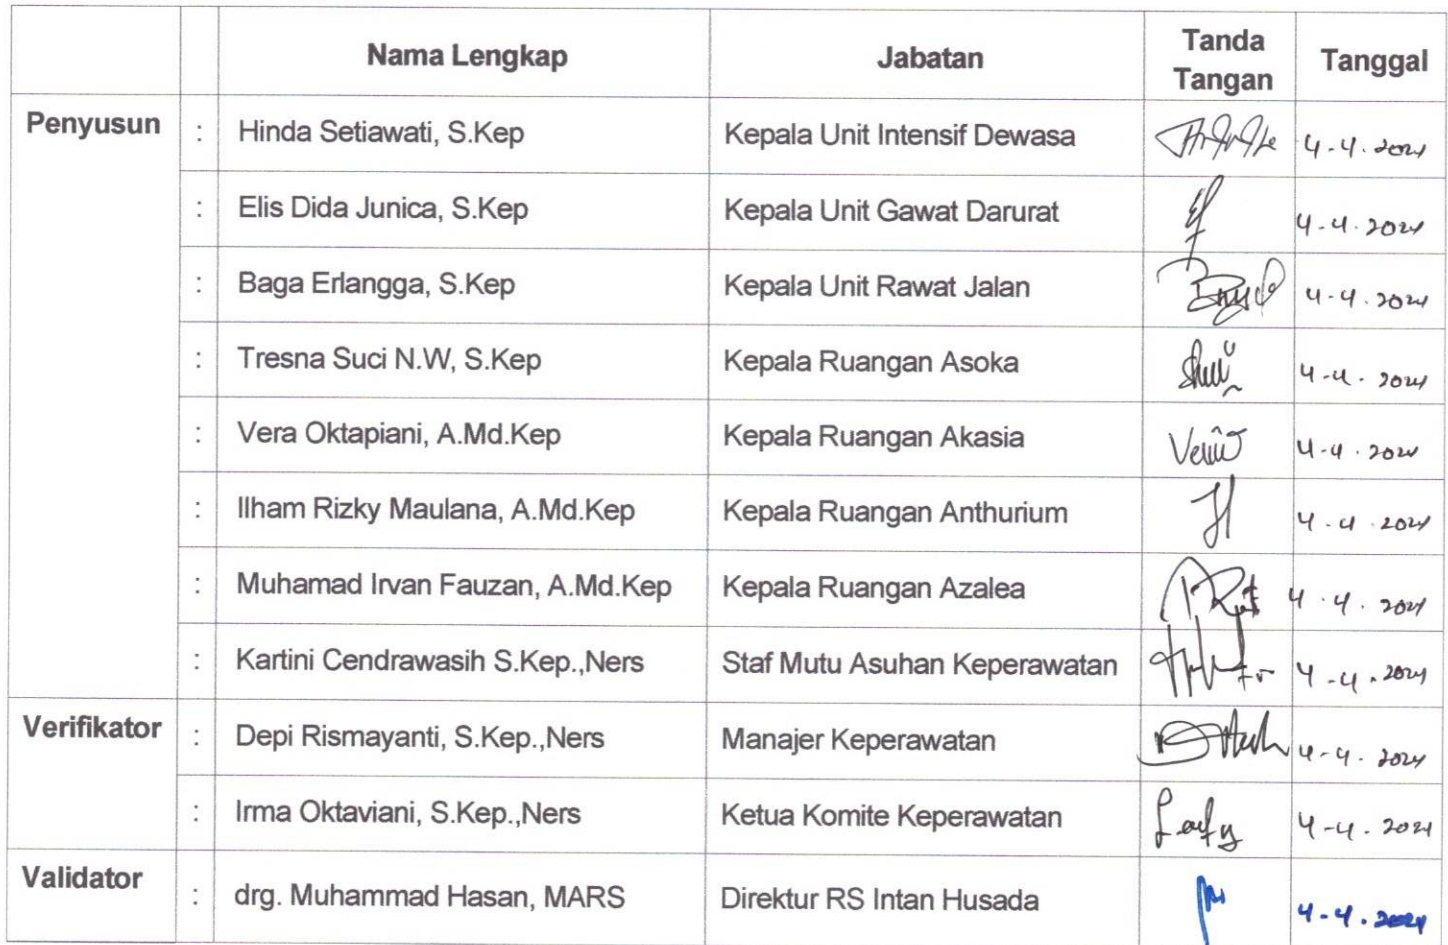 Nama Lengkap Jabatan Tanda Tangan Tanggal
Penyusun : Hinda Setiawati, S.Kep Kepala Unit Intensif Dewasa 4-4.2024
: Elis Dida Junica, S.Kep Kepala Unit Gawat Darurat 4-4.2024
: Baga Erlangga, S.Kep Kepala Unit Rawat Jalan 4-4.2024
: Tresna Suci N.W, S.Kep Kepala Ruangan Asoka 4-4.2024
: Vera Oktapiani, A.Md.Kep Kepala Ruangan Akasia 4-4.2024
: Ilham Rizky Maulana, A.Md.Kep Kepala Ruangan Anthurium 4-4.2024
: Muhamad Irvan Fauzan, A.Md.Kep Kepala Ruangan Azalea 4.4.2024
: Kartini Cendrawasih S.Kep.,Ners Staf Mutu Asuhan Keperawatan 4-4.2024
Verifikator : Depi Rismayanti, S.Kep.,Ners Manajer Keperawatan 4-4.2024
: Irma Oktaviani, S.Kep.,Ners Ketua Komite Keperawatan 4-4.2024
Validator : drg. Muhammad Hasan, MARS Direktur RS Intan Husada 4-4.2024